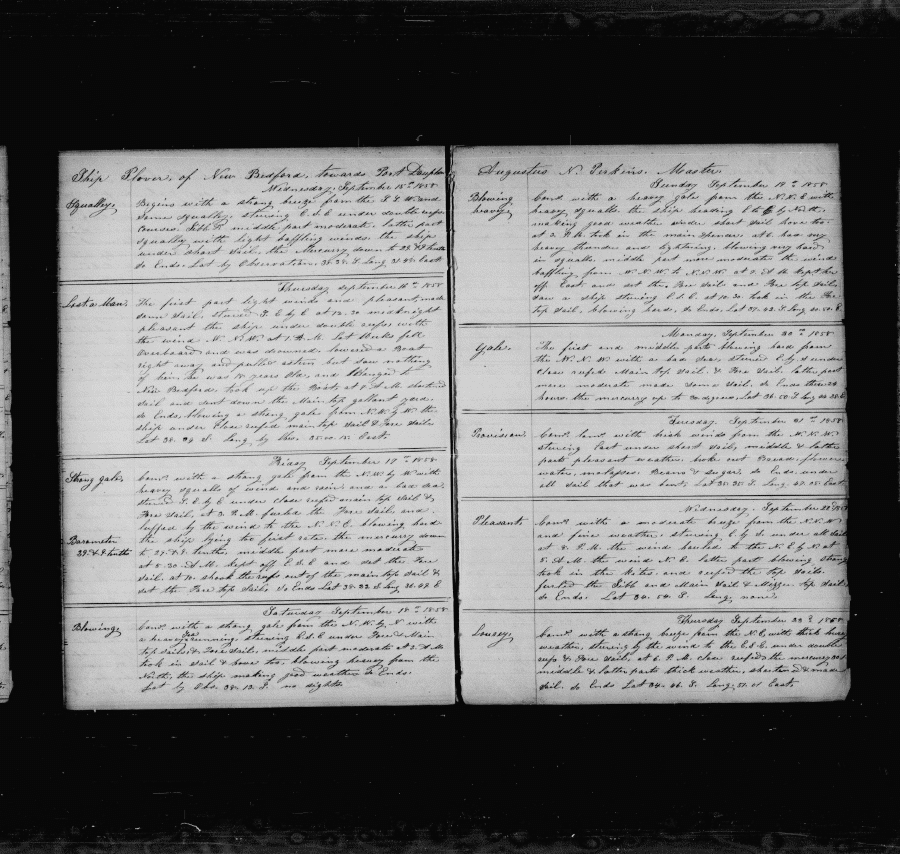 Ship Plover, of New Bedford, towards Port Dauphin
Wednesday, September 15th 1858
Squally,
Begins with a strong breeze from the S.S.W. and
some squally, stering E.S.E. under double reefs
courses. Jibb & middle part moderate. latter part
squally with light baffling winds. the ship
under short sail, the Mercury down to 29.&.8 tenths
So Ends. Lat by Observation. 38.28. S. Long 31.42. East
Thursday, September 16th 1858
Lost a Man.
The first part light winds and pleasant, made
some sail. stered S.E. by E. at 12.30 midknight
pleasant the ship under double reefs with
the wind N.N.W. at 1 A.M. Lot
overboard and was drowned. lowered a Boat
right away and pulled astern but saw nothing
of him, he was 18 years old, and belonged to
New Bedford, took up the Boat, at 8 A.M. shortend
sail and sent down the Main top gallant yard,
So Ends, blowing a strong gale from N.N.W. the
ship under close reefed main top sail & Fore Sail
Lat 38. 34 S. Long by Chro. 35.00.15. East.
Friday September 17th 1858
Strong gale.
Coms. with a strong gale from the N.W. by W. with
heavy squalls of wind and rain, and a bad sea.
stered S.E. by E. under close reefed main top sail &
Fore Sail, at 3 P.M. furled the Fore Sail, and
luffed by the wind to the N.N.E. blowing hard
Barometer
the ship lying too first rate. the mercury down
29.&.2 tenths
to 29.&.2. tenths, middle part more moderate
at 8.30 A.M. kept off E.S.E. and set the Fore
Sail, at 10. shook the reefs out of the main top sail &
set the Fore top sail. So Ends Lat 38. 33 S. Long 36.49 E.
Saturday September 18th 1858
Blowing,
Coms. with a strong gale from the N.W. by N. with
a heavy Sea running. stering E.S.E. under Fore & Main
top sails, & Fore sail, middle part moderate at 2 A.M
took in sail & hove too, blowing heavy from the
North, the ship making good weather So Ends.
Lat by Obs. 38. 13. S. no sights.
Augustus N. Perkins. Master.
Sunday September 19th 1858
Blowing
heavy,
Coms. with a heavy gale from the N.N.E. with
heavy squalls the ship heading E to E. by North.
making good weather under short sail hove too.
at 3 P.M. took in the main Spencer. at 8. had very
heavy thunder and lightning. blowing very hard
in squalls. middle part more moderate the winds
baffling from W.N.W. to N.N.W. at 2 A.M kept her
off East and set the Fore Sail and Fore top sail,
saw a ship stering E.S.E. at 10.30. took in the Fore
top sail, blowing hard. So Ends. Lat 37.43 S. Long 40.50. E.
Monday, September 20th 1858
Gale.
The first and middle parts blowing hard from
the N.N.W. with a bad Sea, stered E. by S under
Close reefed Main top Sail. & Fore Sail. latter part
more moderate made some Sail. So Ends these 24
hours. the mercury up to 30 degrees, Lat 36.50 S. Long 44.38. E.
Tuesday, September 21st 1858
Provision.
Coms. with brisk winds from the N.N.W.
stering East under short sail, middle & latter
parts pleasant weather. broke out Bread, flower,
water, molasses. Beans & Sugar. So Ends under
all sail that was bent, Lat 35.35 S. Long. 47.35. East.
Wednesday, September 22d 1858
Pleasant.
Coms. with a moderate breeze from the N.N.W.
and fine weather. stering E. by S. under all sail
at 8. P.M. the wind hauled to the N.E. by N. at
5. A.M. the wind N.E. latter part blowing strong
took in the Kites. and reefed the top sails.
furled the Jibb and Main Sail & Mizzen top Sail
So Ends. Lat 34. 54. S. Long. none.
Thursday September 23d 1858.
Lousey,
Coms. with a strong breeze from the N.E. with thick heavy
weather, stering by the wind to the E.S.E. under double
reefs & Fore Sail, at 6. P.M. close reefed the mercury
middle & latter parts thick weather, shortend & made
Sail. So Ends Lat 34. 46. S. Long. 51. 01 East